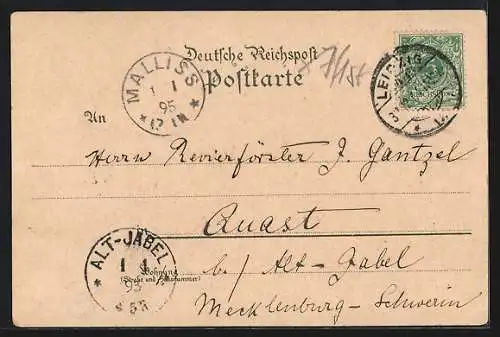 Deutsche Reichspost
Postkarte
MALLISS
1 1
95
LEIPZIG
An
Herrn Revierförster J. Gantzel
Quast
ALT-JABEL
1 1
95
Wohnung
(Straße und Hausnummer)
b./ Alt-Jabel
Mecklenburg-Schwerin